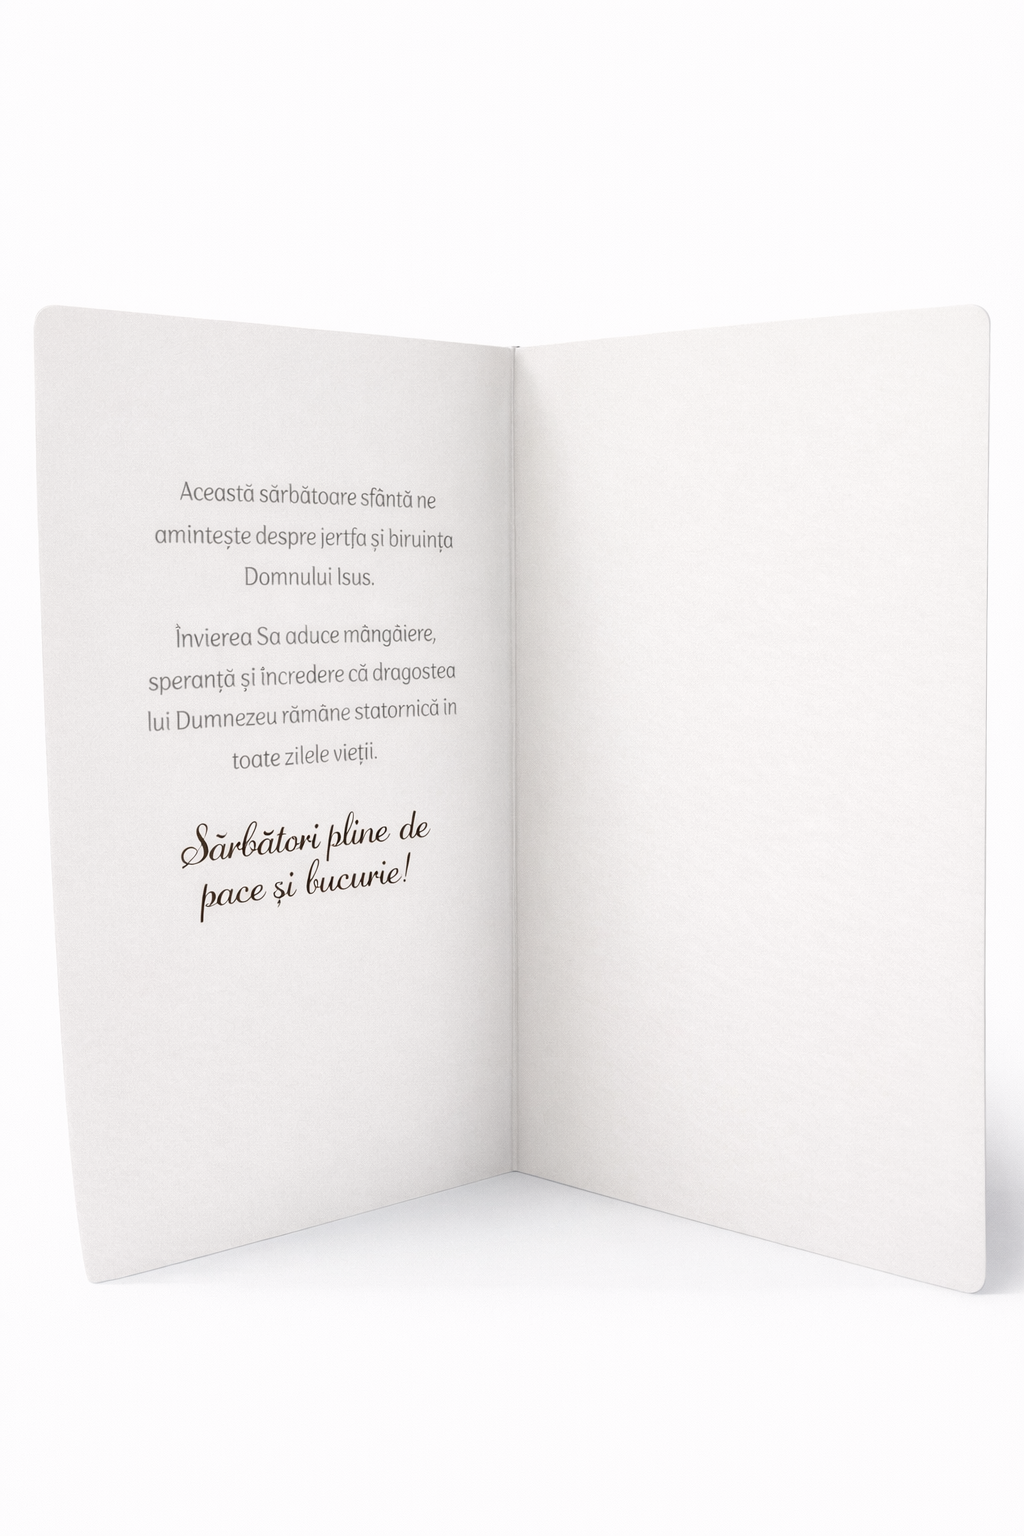 Această sărbătoare sfântă ne
amintește despre jertfa și biruința
Domnului Isus.
Învierea Sa aduce mângâiere,
speranță și încredere că dragostea
lui Dumnezeu rămâne statornică in
toate zilele vieții.
Sărbători pline de
pace și bucurie!